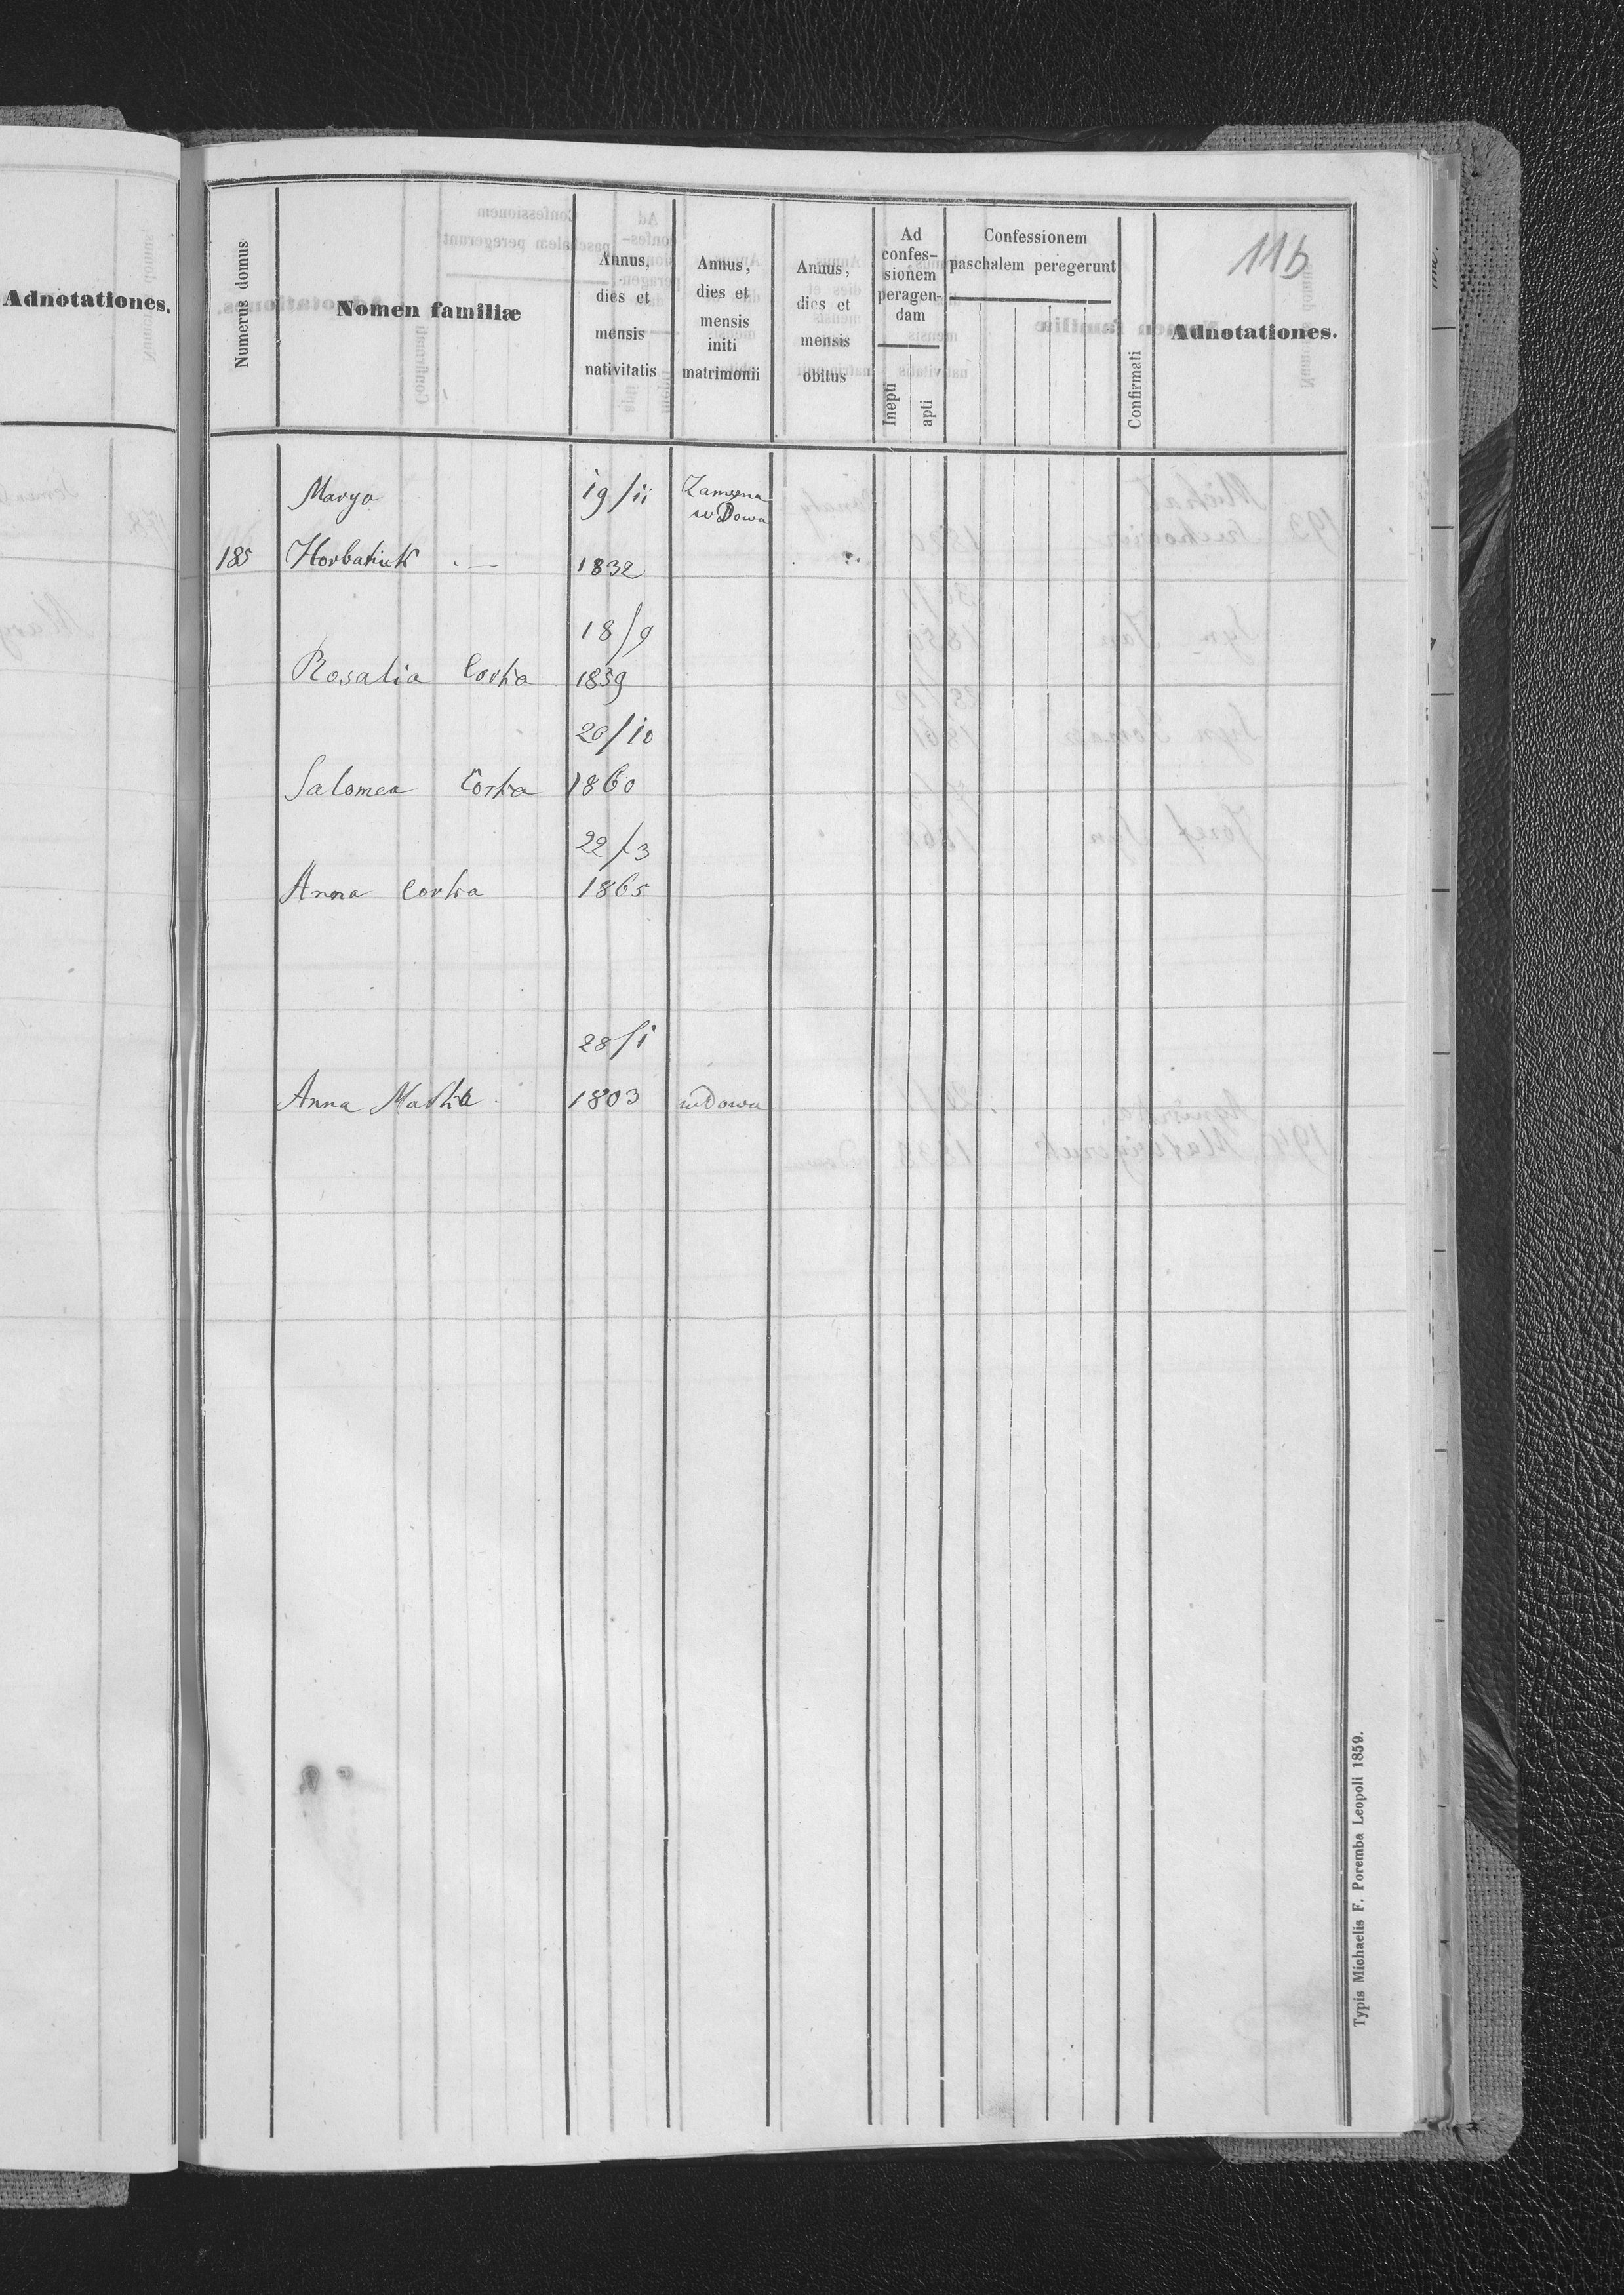 Adnotationes.
116
Numerus domus
Nomen familiæ
Annus, dies et mensis nativitatis
Annus, dies et mensis initi matrimonii
Annus, dies et mensis obitus
Ad confes-sionem peragen-dam
Inepti
apti
Confessionem paschalem peregerunt
Confirmati
Adnotationes.
Marya 19/11
wdowa
185 Horbatiuk 1832
18/9
Rosalia Corka 1859
20/10
Salomea Corka 1860
22/3
Anna Corka 1865
28/1
Anna Matka 1803 wdowa
Typis Michaelis F. Poremba Leopoli 1859.